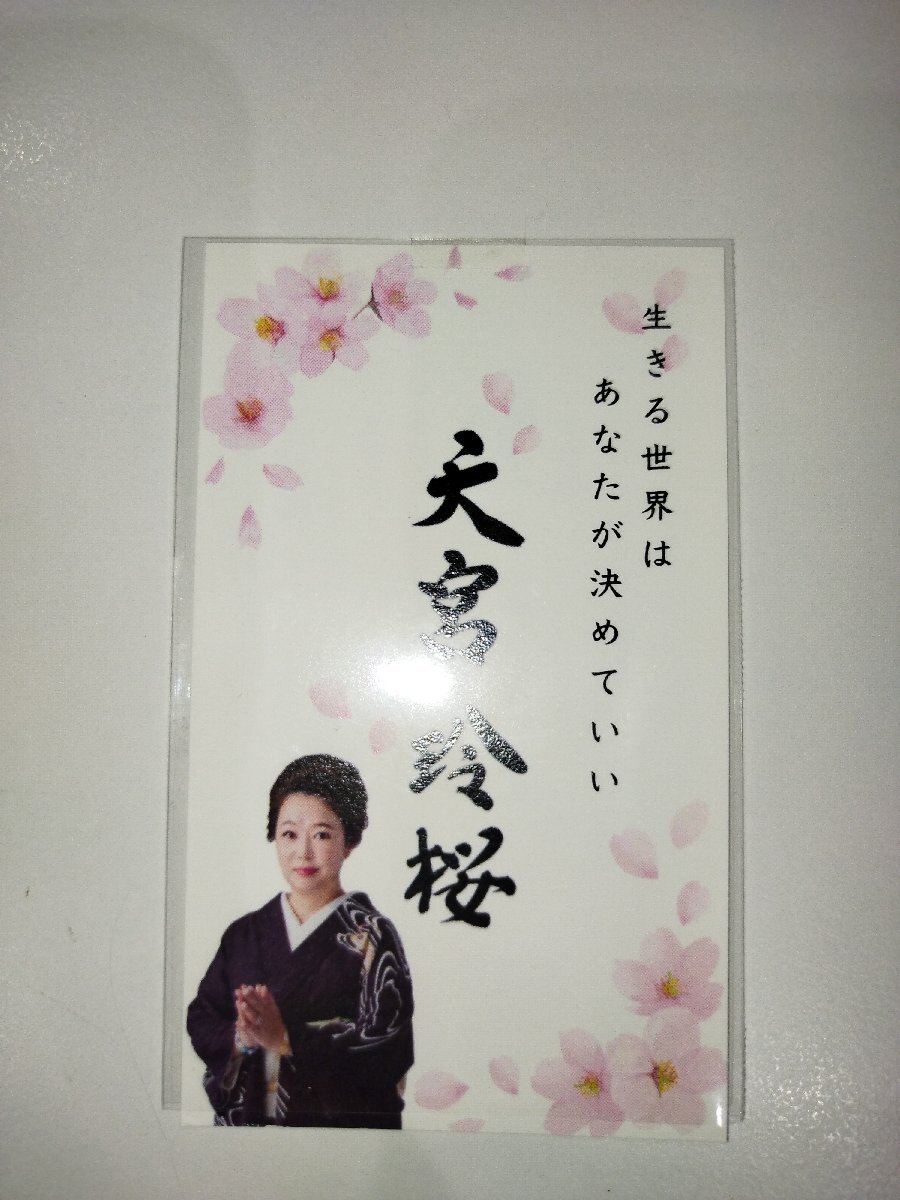 生きる世界は
あなたが決めていい
天宮玲桜